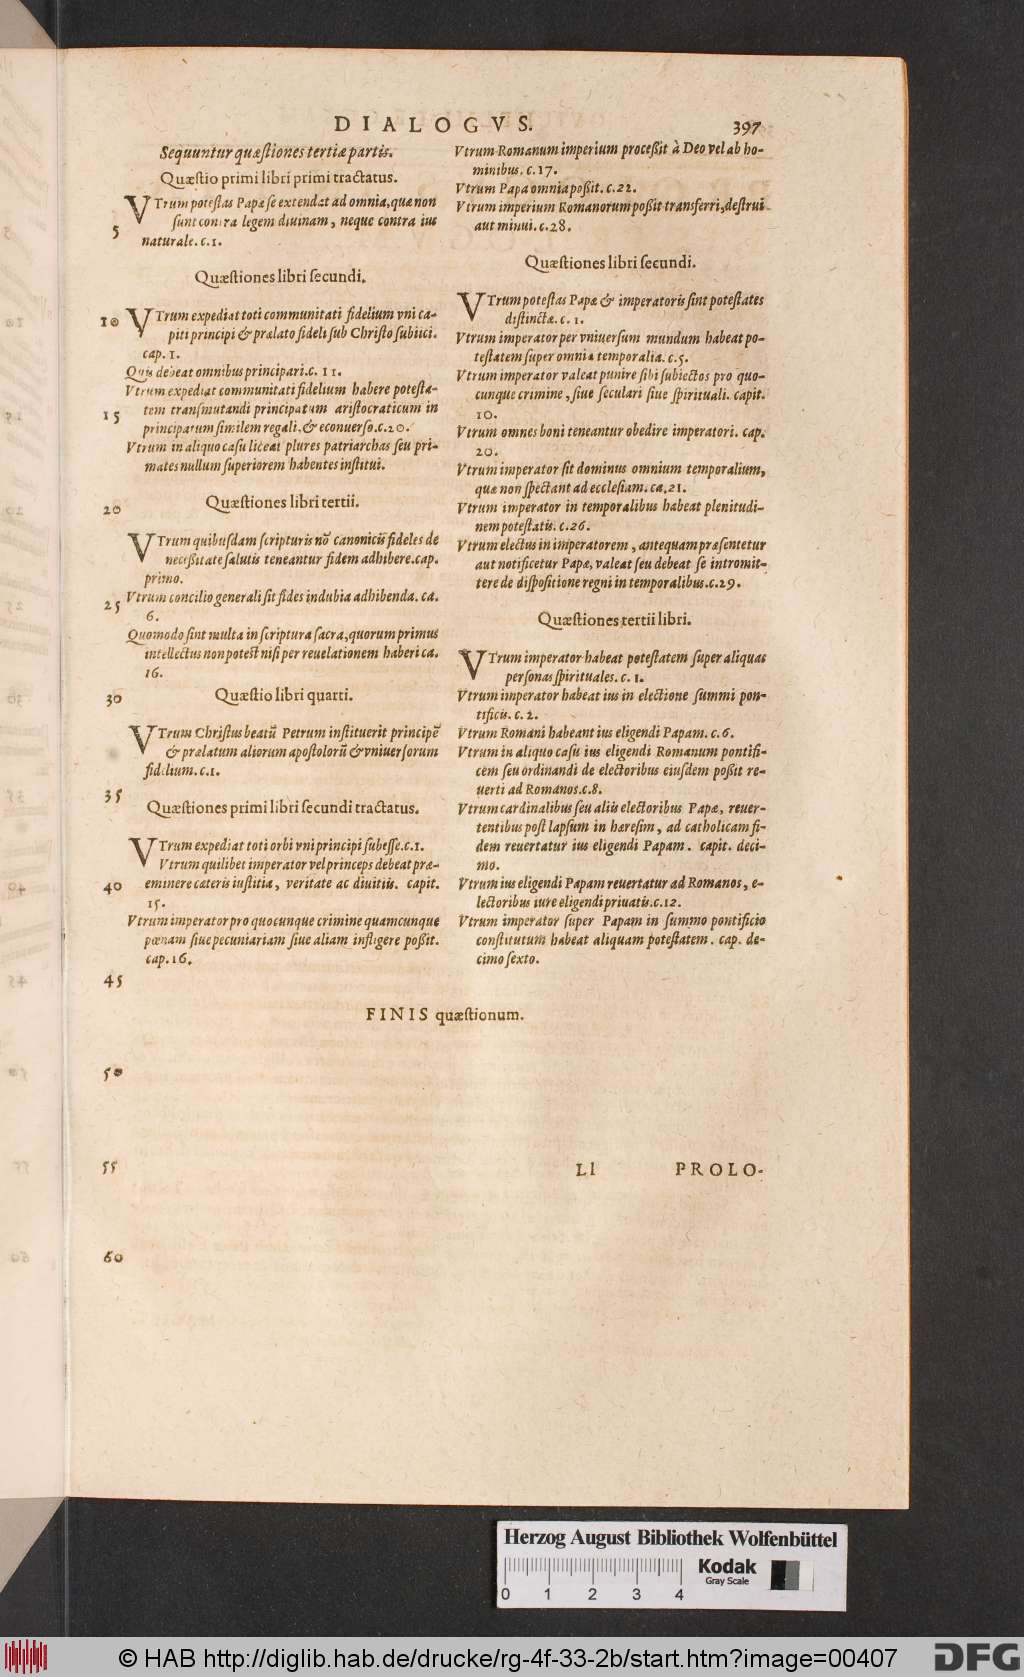 DIALOGVS. 397
Sequuntur quæstiones tertiæ partis.
Quæstio primi libri primi tractatus.
VTrum potestas Papæ se extendat ad omnia, quæ non
5 sunt contra legem diuinam, neque contra ius
naturale. c. 1.
Quæstiones libri secundi.
10 VTrum expediat toti communitati fidelium vni ca-
piti principi & prælato fideli sub Christo subiici.
cap. 1.
Quis debeat omnibus principari. c. 11.
Vtrum expediat communitati fidelium habere potesta-
15 tem transmutandi principatum aristocraticum in
principatum similem regali, & econuerso. c. 20.
Vtrum in aliquo casu liceat plures patriarchas seu pri-
mates nullum superiorem habentes institui.
20 Quæstiones libri tertii.
VTrum quibusdam scripturis nõ canonicis fideles de
necessitate salutis teneantur fidem adhibere. cap.
primo.
25 Vtrum concilio generali sit fides indubia adhibenda. ca.
6.
Quomodo sint multa in scriptura sacra, quorum primus
intellectus non potest nisi per reuelationem haberi ca.
16.
30 Quæstio libri quarti.
VTrum Christus beatũ Petrum instituerit principẽ
& prælatum aliorum apostolorũ & vniuersorum
fidelium. c. 1.
35 Quæstiones primi libri secundi tractatus.
VTrum expediat toti orbi vni principi subesse. c. 1.
Vtrum quilibet imperator vel princeps debeat præ-
40 eminere cæteris iustitia, veritate ac diuitiis. capit.
15.
Vtrum imperator pro quocunque crimine quamcunque
pœnam siue pecuniariam siue aliam infligere possit.
cap. 16.
45
Vtrum Romanum imperium processit à Deo vel ab ho-
minibus. c. 17.
Vtrum Papa omnia possit. c. 22.
Vtrum imperium Romanorum possit transferri, destrui
aut minui. c. 28.
Quæstiones libri secundi.
VTrum potestas Papæ & imperatoris sint potestates
distinctæ. c. 1.
Vtrum imperator per vniuersum mundum habeat po-
testatem super omnia temporalia. c. 5.
Vtrum imperator valeat punire sibi subiectos pro quo-
cunque crimine, siue seculari siue spirituali. capit.
10.
Vtrum omnes boni teneantur obedire imperatori. cap.
20.
Vtrum imperator sit dominus omnium temporalium,
quæ non spectant ad ecclesiam. ca. 21.
Vtrum imperator in temporalibus habeat plenitudi-
nem potestatis. c. 26.
Vtrum electus in imperatorem, antequam præsentetur
aut notificetur Papæ, valeat seu debeat se intromit-
tere de dispositione regni in temporalibus. c. 29.
Quæstiones tertii libri.
VTrum imperator habeat potestatem super aliquas
personas spirituales. c. 1.
Vtrum imperator habeat ius in electione summi pon-
tificis. c. 2.
Vtrum Romani habeant ius eligendi Papam. c. 6.
Vtrum in aliquo casu ius eligendi Romanum pontifi-
cem seu ordinandi de electoribus eiusdem possit re-
uerti ad Romanos. c. 8.
Vtrum cardinalibus seu aliis electoribus Papæ, reuer-
tentibus post lapsum in hæresim, ad catholicam fi-
dem reuertatur ius eligendi Papam. capit. deci-
mo.
Vtrum ius eligendi Papam reuertatur ad Romanos, e-
lectoribus iure eligendi priuatis. c. 12.
Vtrum imperator super Papam in summo pontificio
constitutum habeat aliquam potestatem. cap. de-
cimo sexto.
FINIS quæstionum.
50
55 Ll PROLO-
60
Herzog August Bibliothek Wolfenbüttel
Kodak
Gray Scale
0 1 2 3 4
© HAB http://diglib.hab.de/drucke/rg-4f-33-2b/start.htm?image=00407 DFG